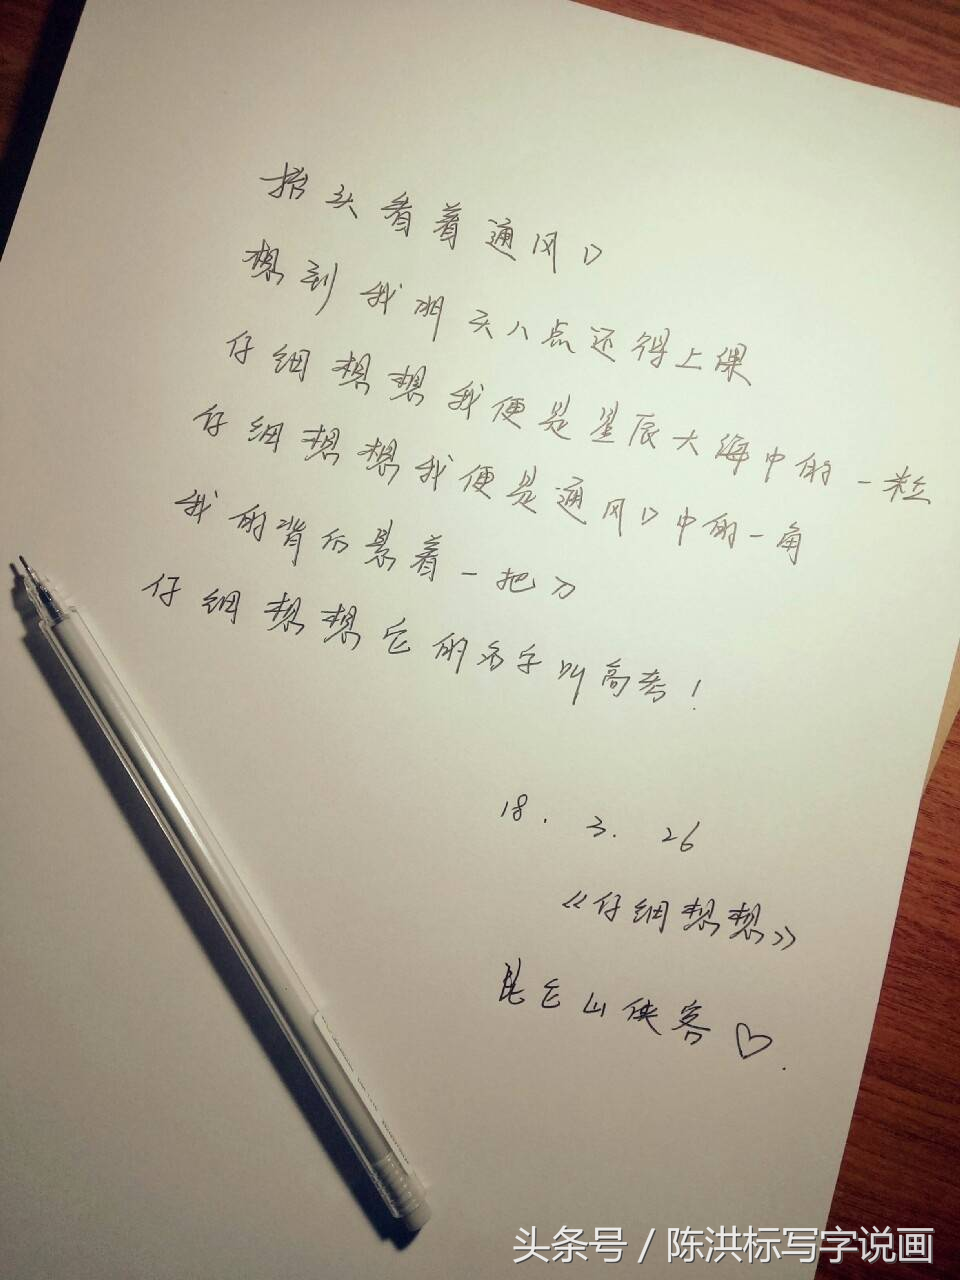 抬头看着通风口
想到我明天八点还得上课
仔细想想我便是星辰大海中的一粒
仔细想想我便是通风口中的一角
我的背后悬着一把刀
仔细想想它的名字叫高考！
18.3.26
《仔细想想》
昆仑山侠客♡.
头条号/陈洪标写字说画